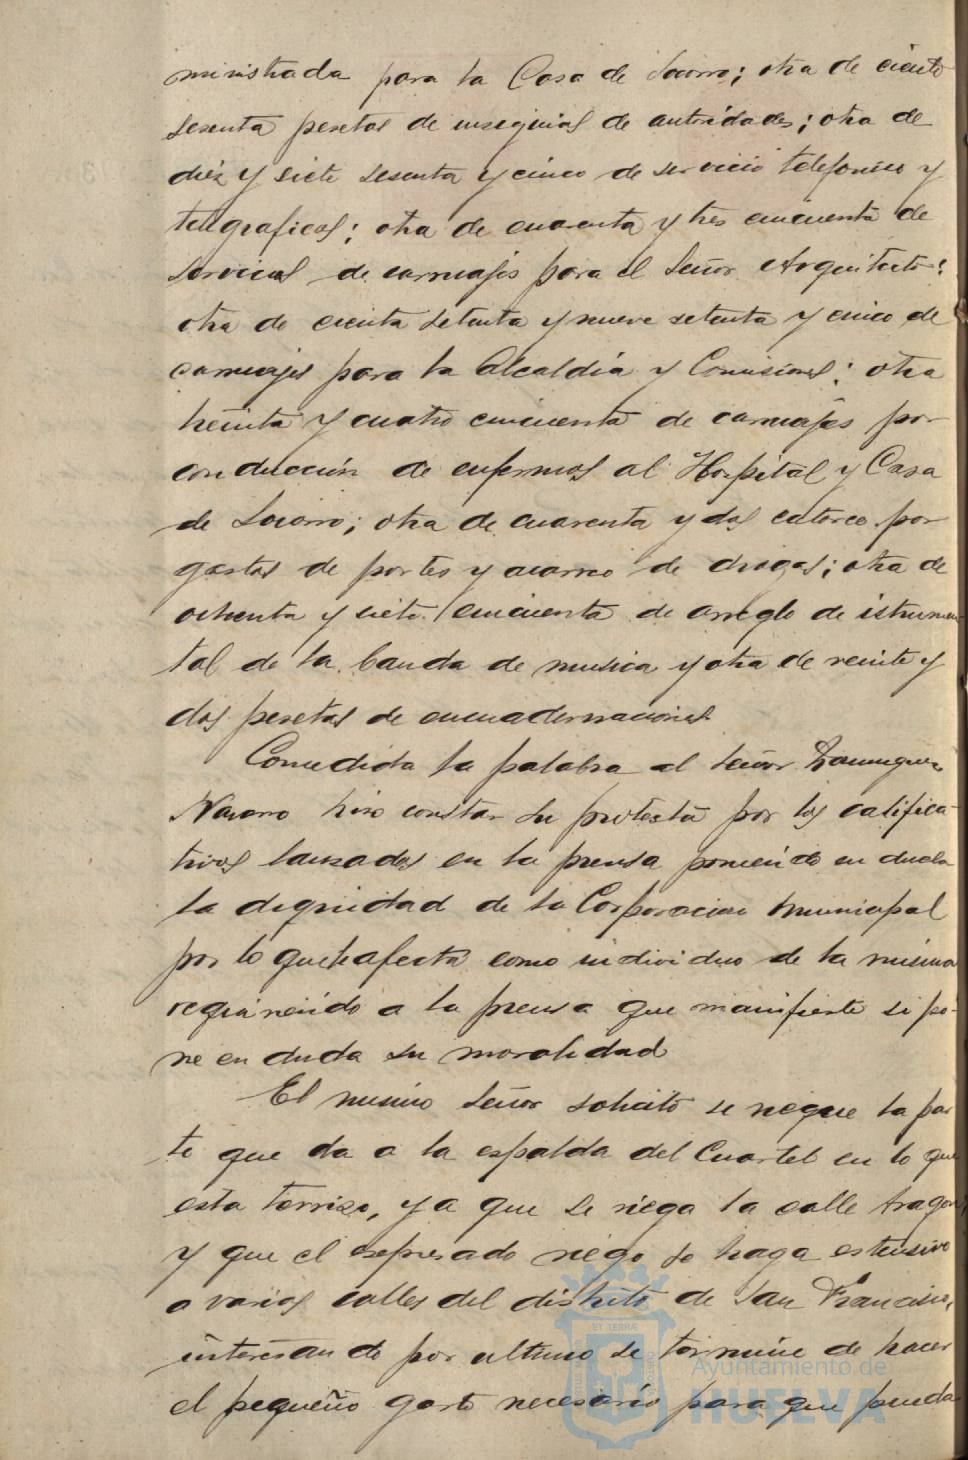 ministrada para la Casa de Socorro; otra de ciento
sesenta pesetas de insignias de autoridades; otra de
diez y siete sesenta y cinco de servicio telefonico y
telegraficos; otra de cuarenta y tres cincuenta de
servicios de carruajes para el Señor Arquitecto;
otra de ciento setenta y nueve setenta y cinco de
carruajes para la Alcaldía y Comisiones; otra
treinta y cuatro cincuenta de carruajes por
conducción de enfermos al Hospital y Casa
de Socorro; otra de cuarenta y dos catorce por
gastos de portes y acarreo de drogas; otra de
ochenta y siete cincuenta de arreglo de istrumen-
tal de la banda de musica y otra de veinte y
dos pesetas de encuadernaciones
Concedida la palabra al Señor Dominguez
Navarro hizo constar su protesta por los califica-
tivos lanzados en la prensa poniendo en duda
la dignidad de la Corporacion Municipal
por lo que le afecta como individuo de la misma
requiriendo a la prensa que manifieste si po-
ne en duda su moralidad
El mismo Señor solicitó se riegue la par
te que da a la espalda del Cuartel en lo que
esta terrizo, y a que se riega la calle Aragon
y que el expresado riego se haga estensivo
a varias calles del distrito de San Francisco,
interesando por ultimo se termine de hacer
el pequeño gasto necesario para que pueda
ET TERRÆ
Ayuntamiento de
HUELVA